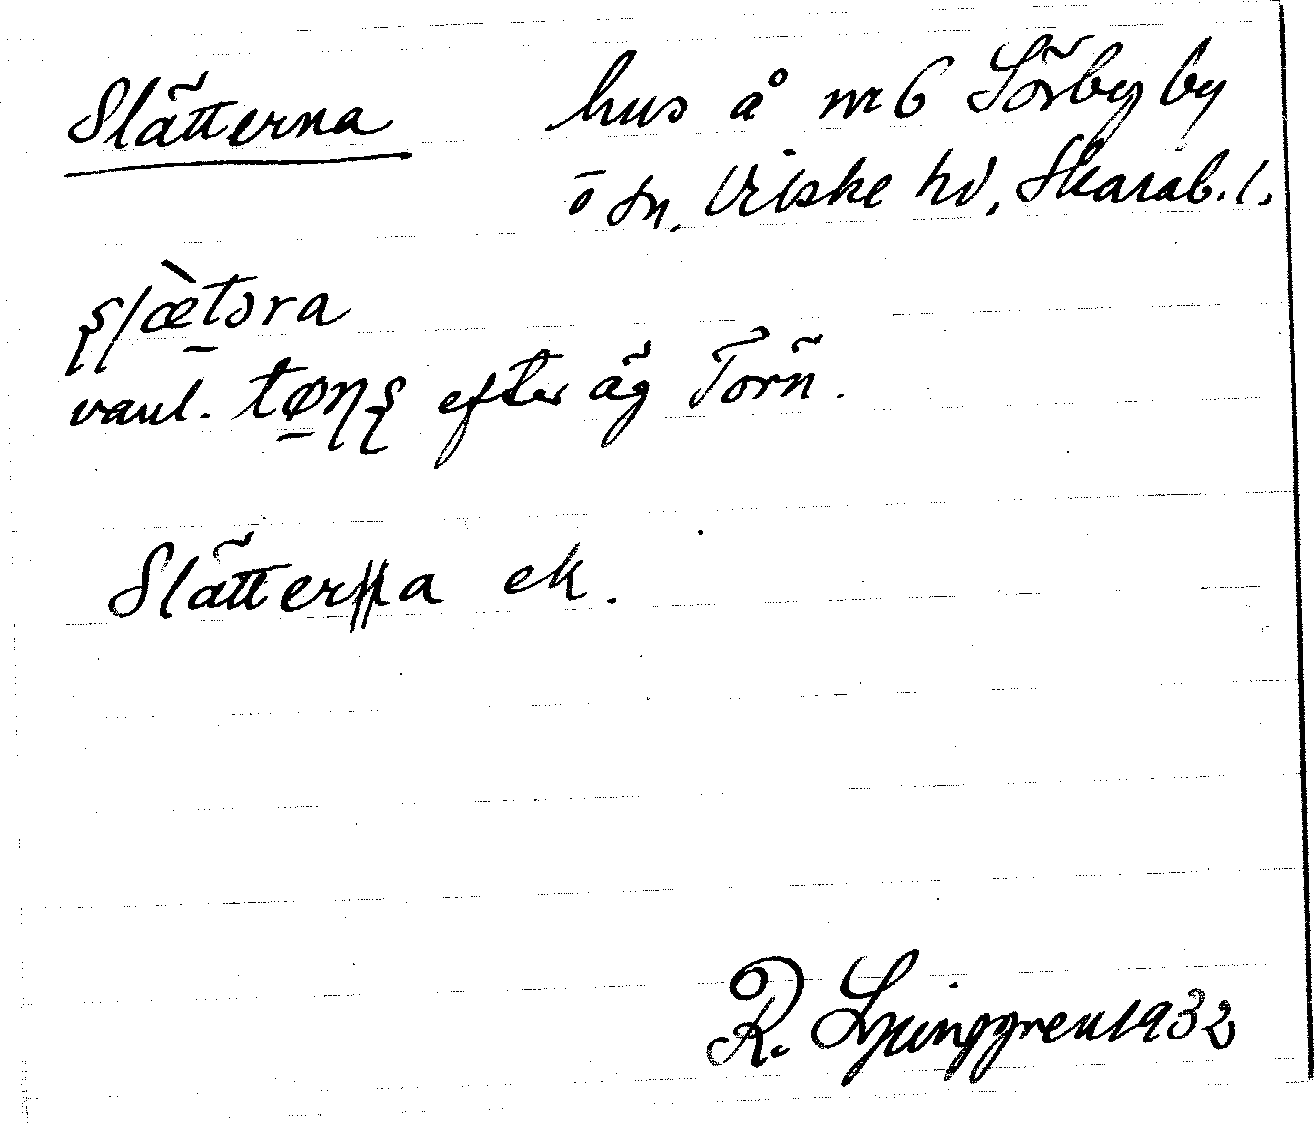 Slätterna hus å nr 6 Sörby by
ö sn, Vilske hd, Skarab. l.
ʂlæ̀təra
vanl. tøɳʂ efter äg Törn.
Slätterna ek.
R. Ljunggren 1932